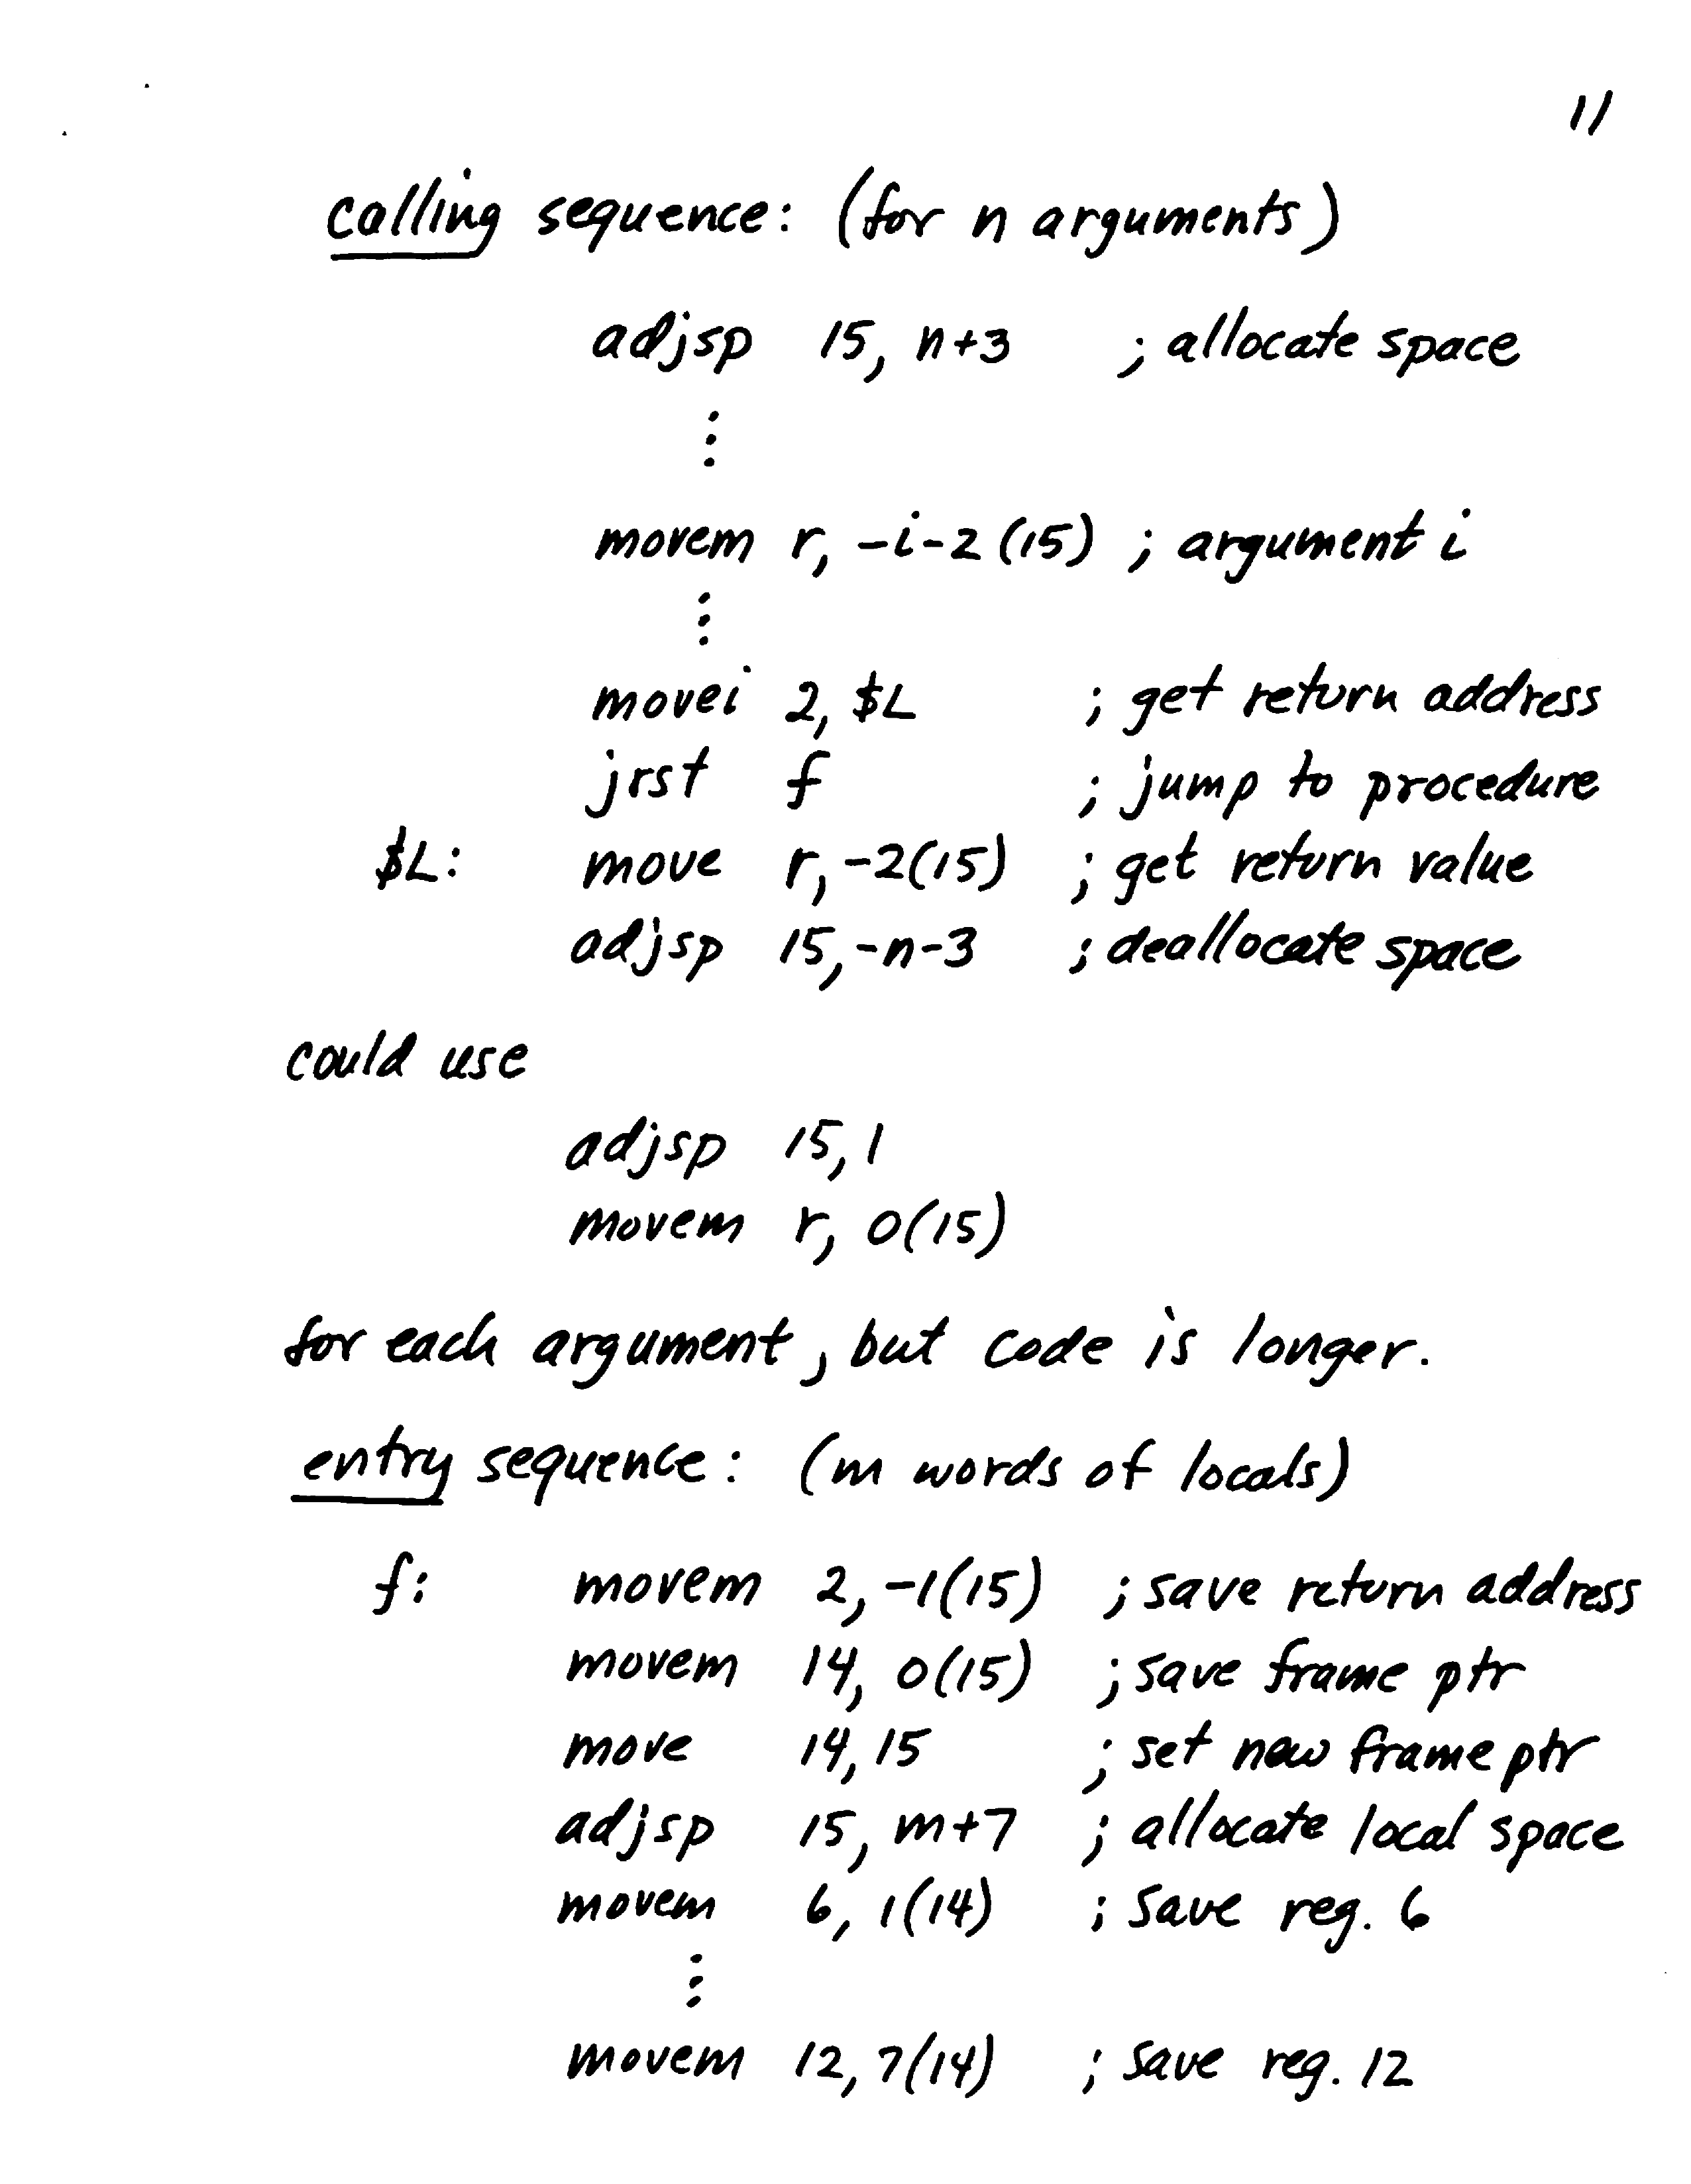 11
calling sequence: (for n arguments)
adjsp 15, n+3 ; allocate space
⋮
movem r, -i-2 (15) ; argument i
⋮
movei 2, $L ; get return address
jrst f ; jump to procedure
$L: move r, -2(15) ; get return value
adjsp 15, -n-3 ; deallocate space
could use
adjsp 15, 1
movem r, 0(15)
for each argument, but code is longer.
entry sequence: (m words of locals)
f: movem 2, -1(15) ; save return address
movem 14, 0(15) ; save frame ptr
move 14, 15 ; set new frame ptr
adjsp 15, m+7 ; allocate local space
movem 6, 1(14) ; save reg. 6
⋮
movem 12, 7(14) ; save reg. 12